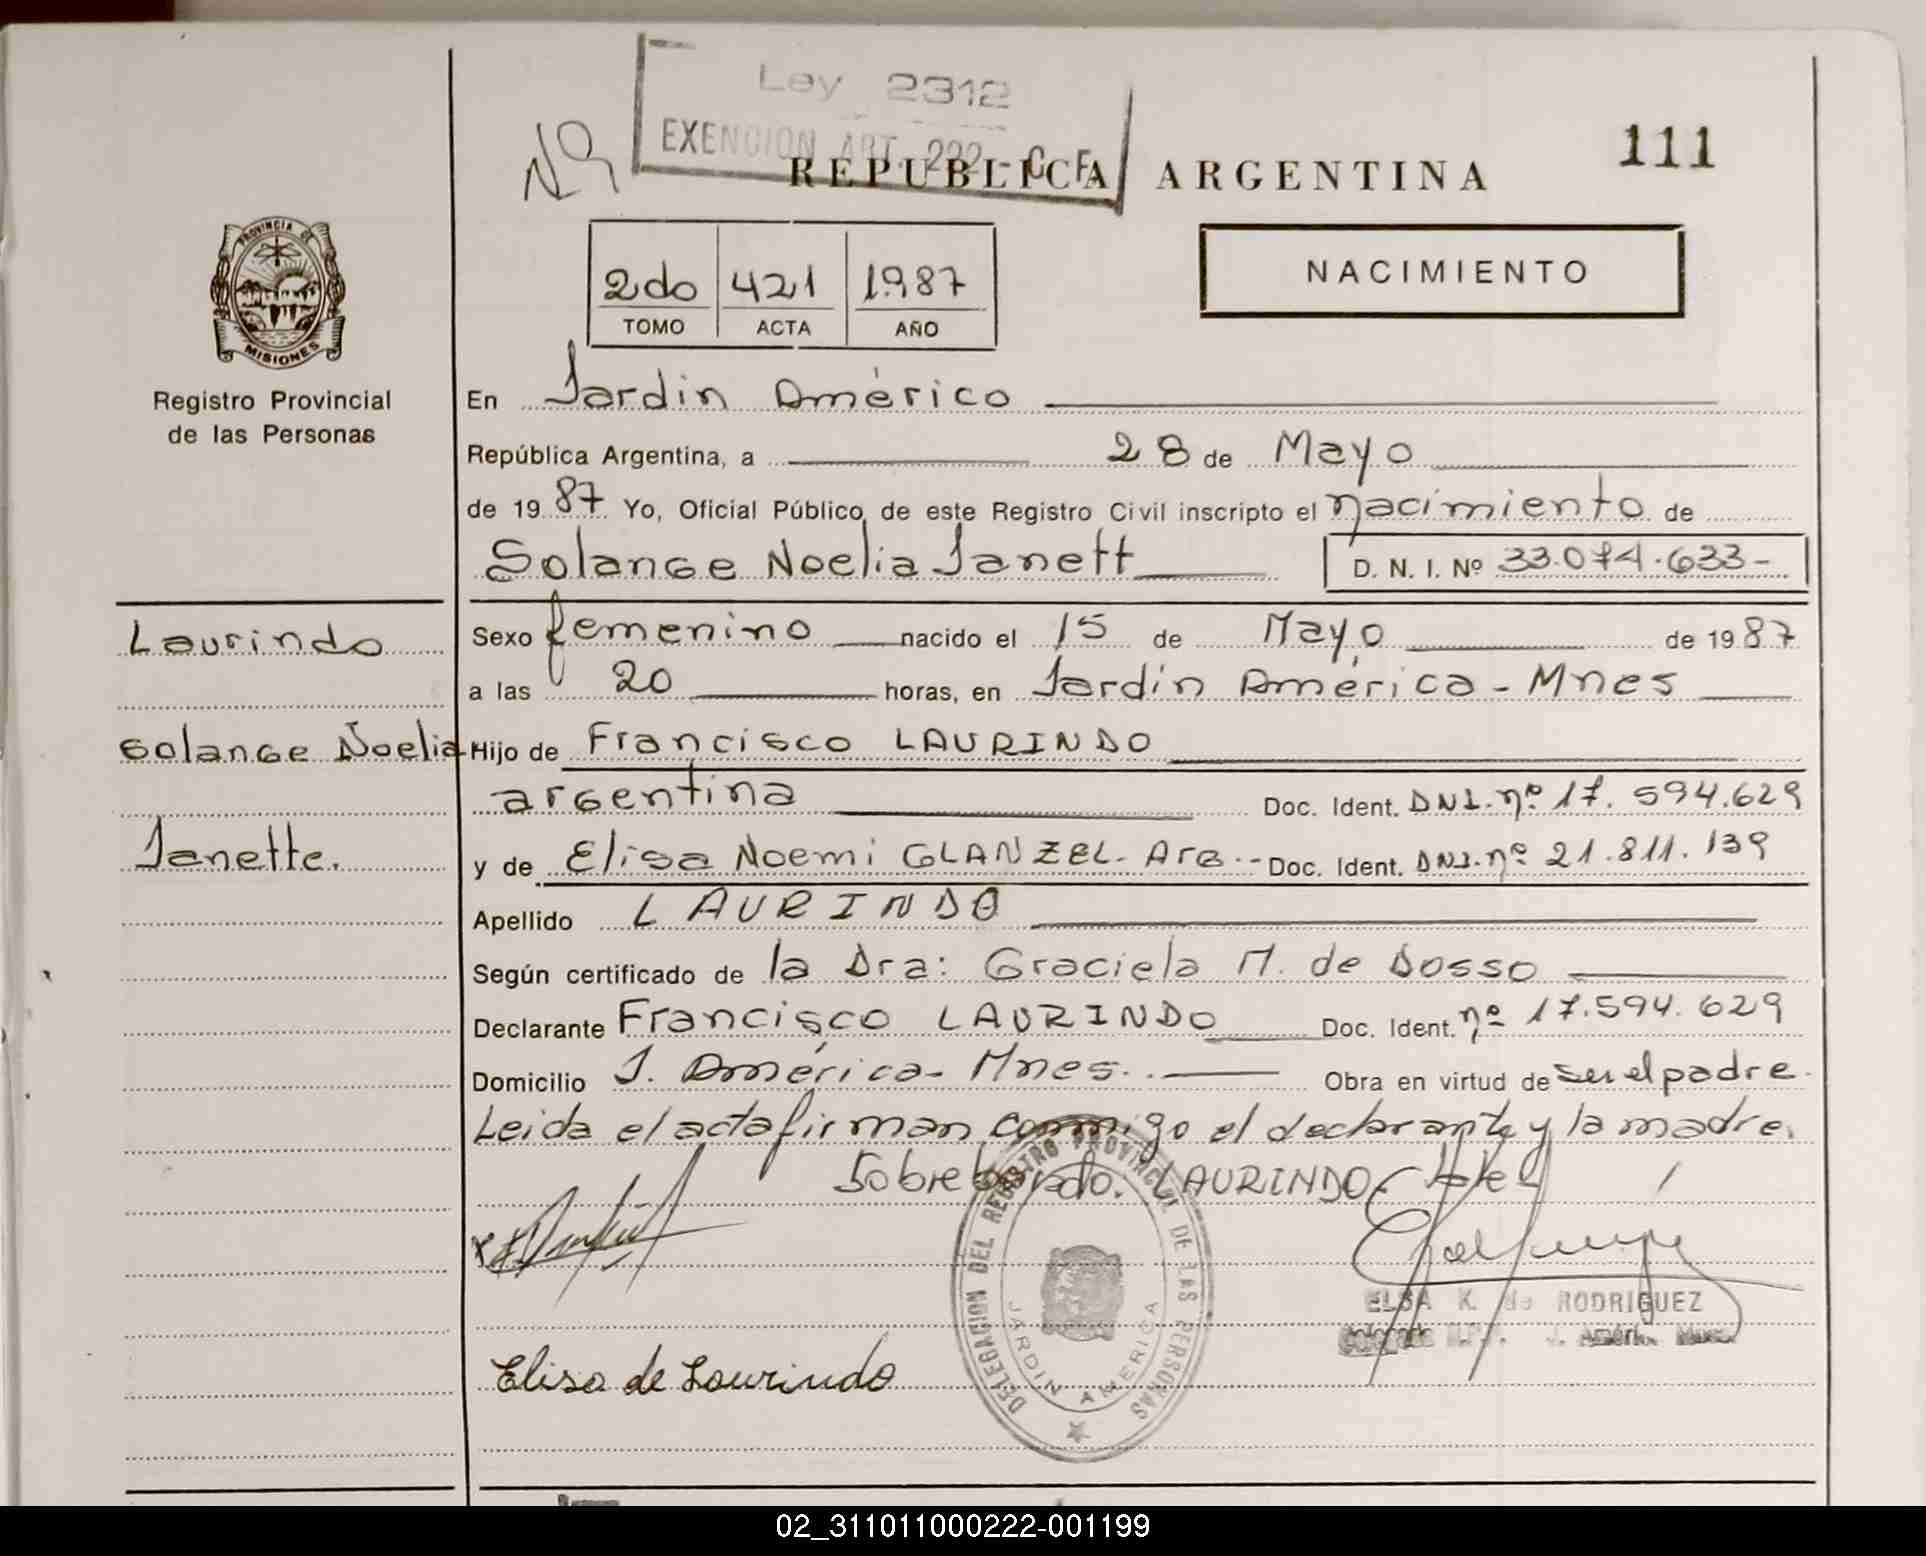 Ley 2312
EXENCION ART. 292 - C.F.
REPUBLICA ARGENTINA
111
PROVINCIA DE MISIONES
Registro Provincial
de las Personas
2do 421 1987
TOMO ACTA AÑO
NACIMIENTO
En Jardin América
República Argentina, a 28 de Mayo
de 1987 Yo, Oficial Público de este Registro Civil inscripto el nacimiento de
Solange Noelia Janett D. N. I. Nº 33.074.633-
Laurindo
Solange Noelia
Janette.
Sexo femenino nacido el 15 de Mayo de 1987
a las 20 horas, en Jardin América - Mnes
Hijo de Francisco LAURINDO
argentina Doc. Ident. DNI. nº 17.594.629
y de Elisa Noemi GLANZEL. Arg.- Doc. Ident. DNI. nº 21.811.139
Apellido LAURINDO
Según certificado de la Dra: Graciela M. de Dosso
Declarante Francisco LAURINDO Doc. Ident. nº 17.594.629
Domicilio J. América - Mnes. Obra en virtud de ser el padre.
Leida el acta firman conmigo el declarante y la madre.
Sobre bordo. LAURINDO
Elisa de Laurindo
DELEGACION DEL REGISTRO PROVINCIAL DE LAS PERSONAS
JARDIN AMERICA
ELSA K. de RODRIGUEZ
02_311011000222-001199